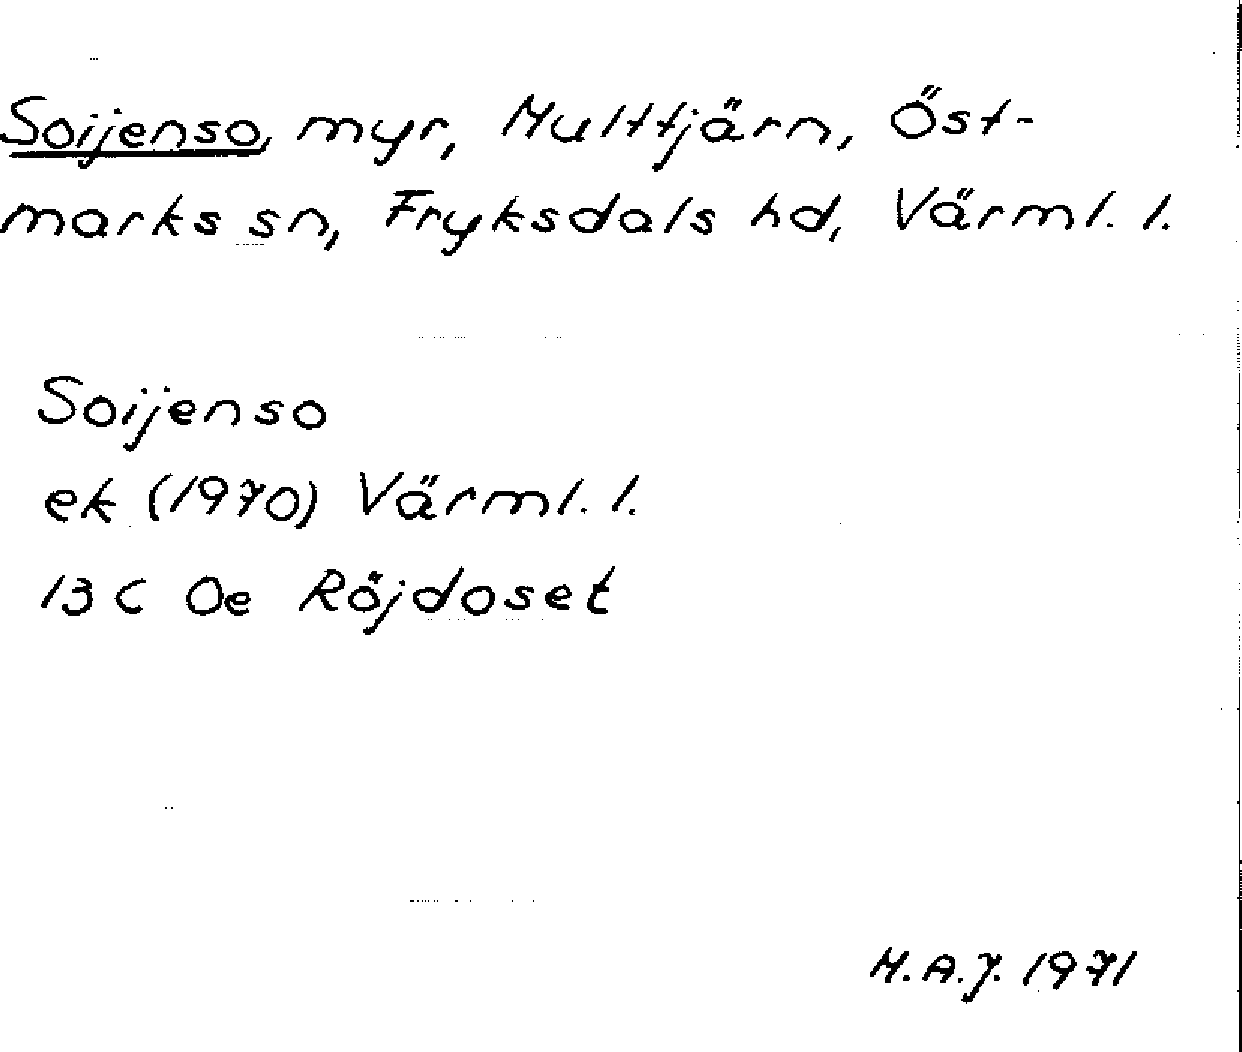 Soijenso, myr, Multtjärn, Öst-
marks sn, Fryksdals hd, Värml. l.
Soijenso
ek (1970) Värml. l.
13 C Oe Röjdoset
M.A.J. 1971